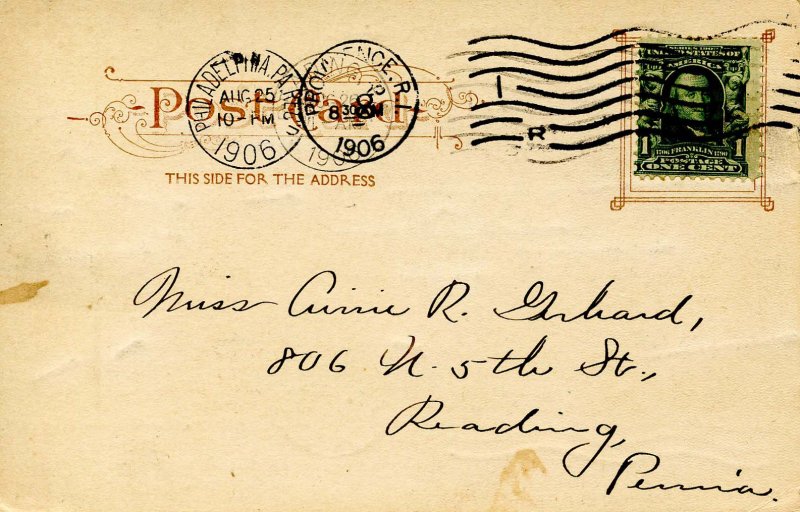 Post Card
THIS SIDE FOR THE ADDRESS
PHILADELPHIA, PA
AUG 25
10 PM
1906
PROVIDENCE, R
8 30
1906
R
SERIES 1902
UNITED STATES OF
AMERICA
1706 FRANKLIN 1790
1 POSTAGE 1
ONE CENT
Miss Carrie R. Gerhard,
806 N. 5th St.,
Reading,
Penn'a.